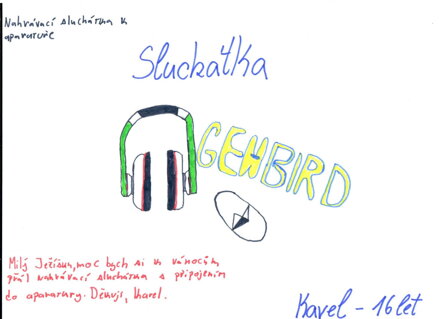 Nahrávací sluchátka k
aparatuře
Sluchátka
GEWBIRD
Milý Ježíšku, moc bych si k vánocům
přál nahrávací sluchátka s připojením
do aparatury. Děkuji, Karel.
Karel - 16 let